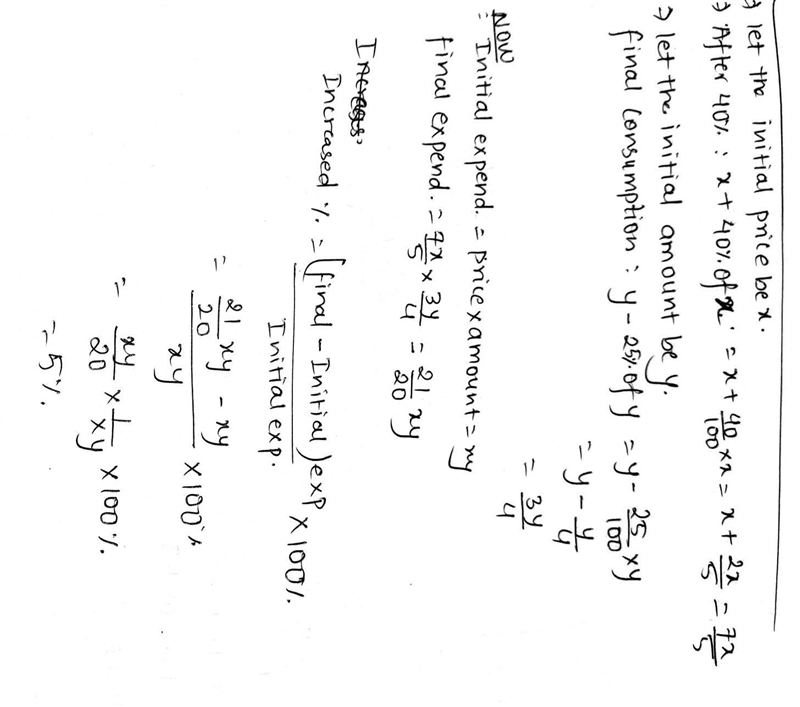 → let the initial price be x.
→ After 40% : x + 40% of x = x + 40/100 × x = x + 2x/5 = 7x/5
→ let the initial amount be y.
final Consumption : y - 25% of y = y - 25/100 × y
= y - y/4
= 3y/4
NOW
: Initial expend. = price x amount = xy
final expend. = 7x/5 × 3y/4 = 21/20 xy
Increased % = (final - Initial) exp / Initial exp. × 100%
= 21/20 xy - xy / xy × 100%
= xy/20 × 1/xy × 100%
= 5%.